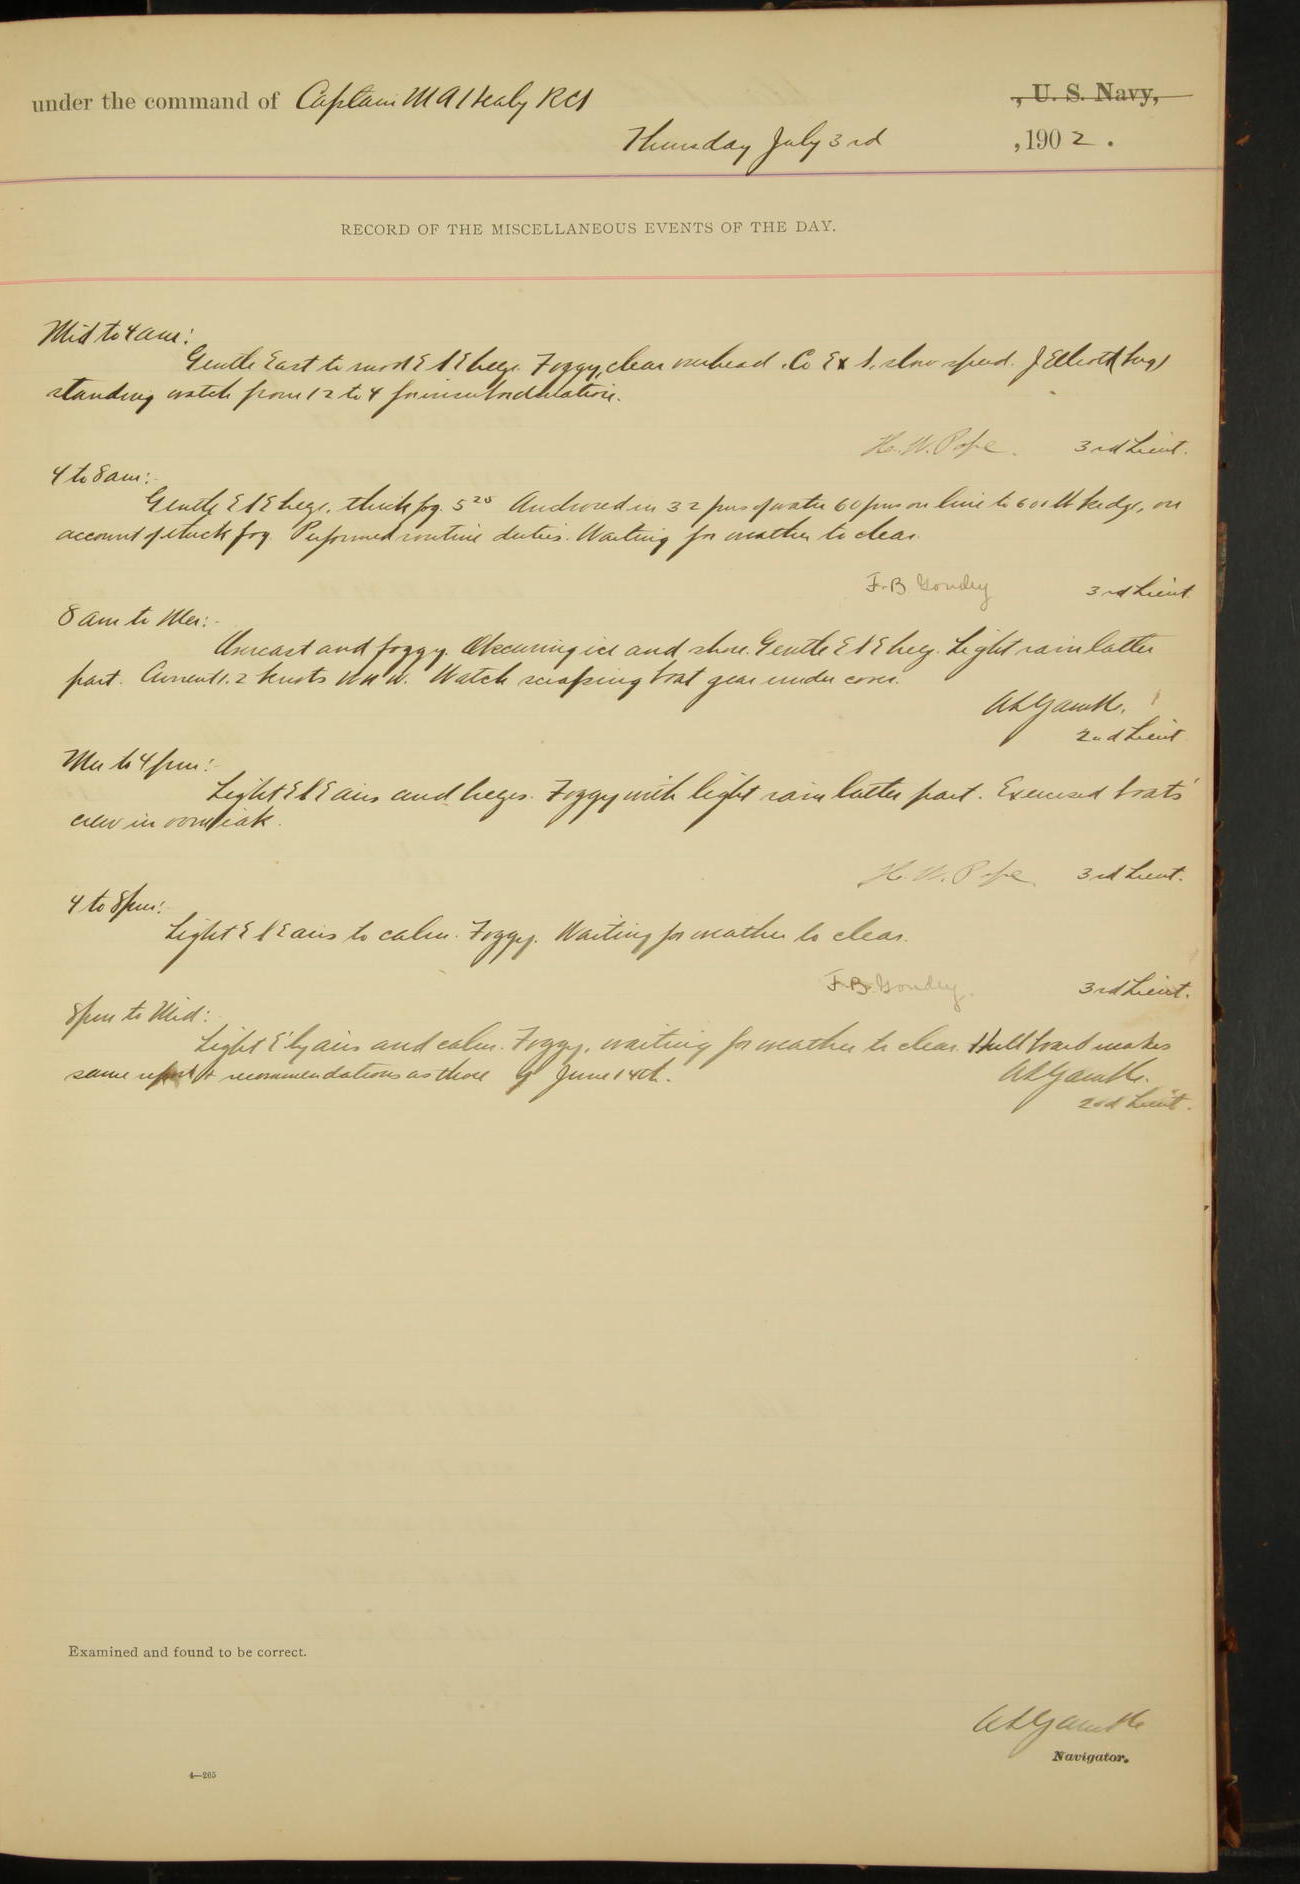 under the command of Captain M A Healy RCS , U. S. Navy,
Thursday July 3rd , 1902 .
RECORD OF THE MISCELLANEOUS EVENTS OF THE DAY.
Mid to 4 am:
Gentle East to mod E S E breeze. Foggy, clear overhead. Co E x S, slow speed. J Elliott (Lng)
standing watch from 12 to 4 for insubordination.
H. W. Pope. 3rd Lieut.
4 to 8 am:-
Gentle E S E breeze, thick fog. 5 20 Anchored in 32 fms of water 60 fms on line to 600 lb kedge, on
account of thick fog. Performed routine duties. Waiting for weather to clear.
F. B. Goudey 3rd Lieut.
8 am to Mer:-
Overcast and foggy. Obscuring ice and shore. Gentle E S E breeze. Light rain latter
part. Current 1.2 knots W N W. Watch scraping boat gear under cover.
A L Gamble.
2nd Lieut
Mer to 4 pm:-
Light E S E airs and breezes. Foggy with light rain latter part. Exercised boats'
crew in oomiak.
H. W. Pope. 3rd Lieut.
4 to 8 pm:
Light E S E airs to calm. Foggy. Waiting for weather to clear.
F. B. Goudey. 3rd Lieut.
8 pm to Mid:
Light E'ly airs and calm. Foggy, waiting for weather to clear. Hull board makes
same report & recommendations as those of June 14th.
A L Gamble.
2nd Lieut.
Examined and found to be correct.
A L Gamble
Navigator.
4—265